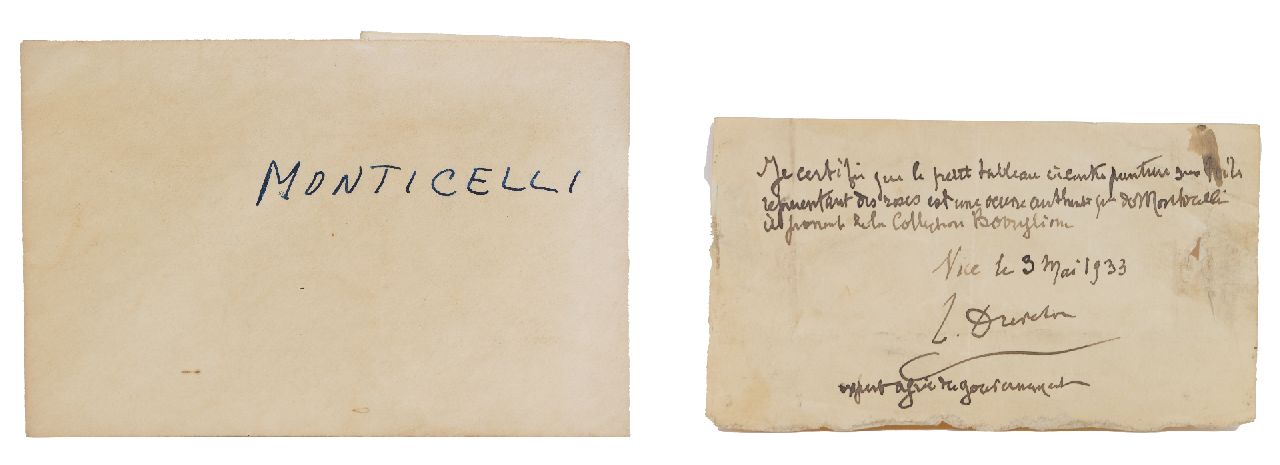 MONTICELLI
Je certifie que le petit tableau ci contre peinture sur
représentant des roses est une oeuvre authentique de Monticelli
il provient de la Collection
Nice le 3 Mai 1933
expert agréé du gouvernement